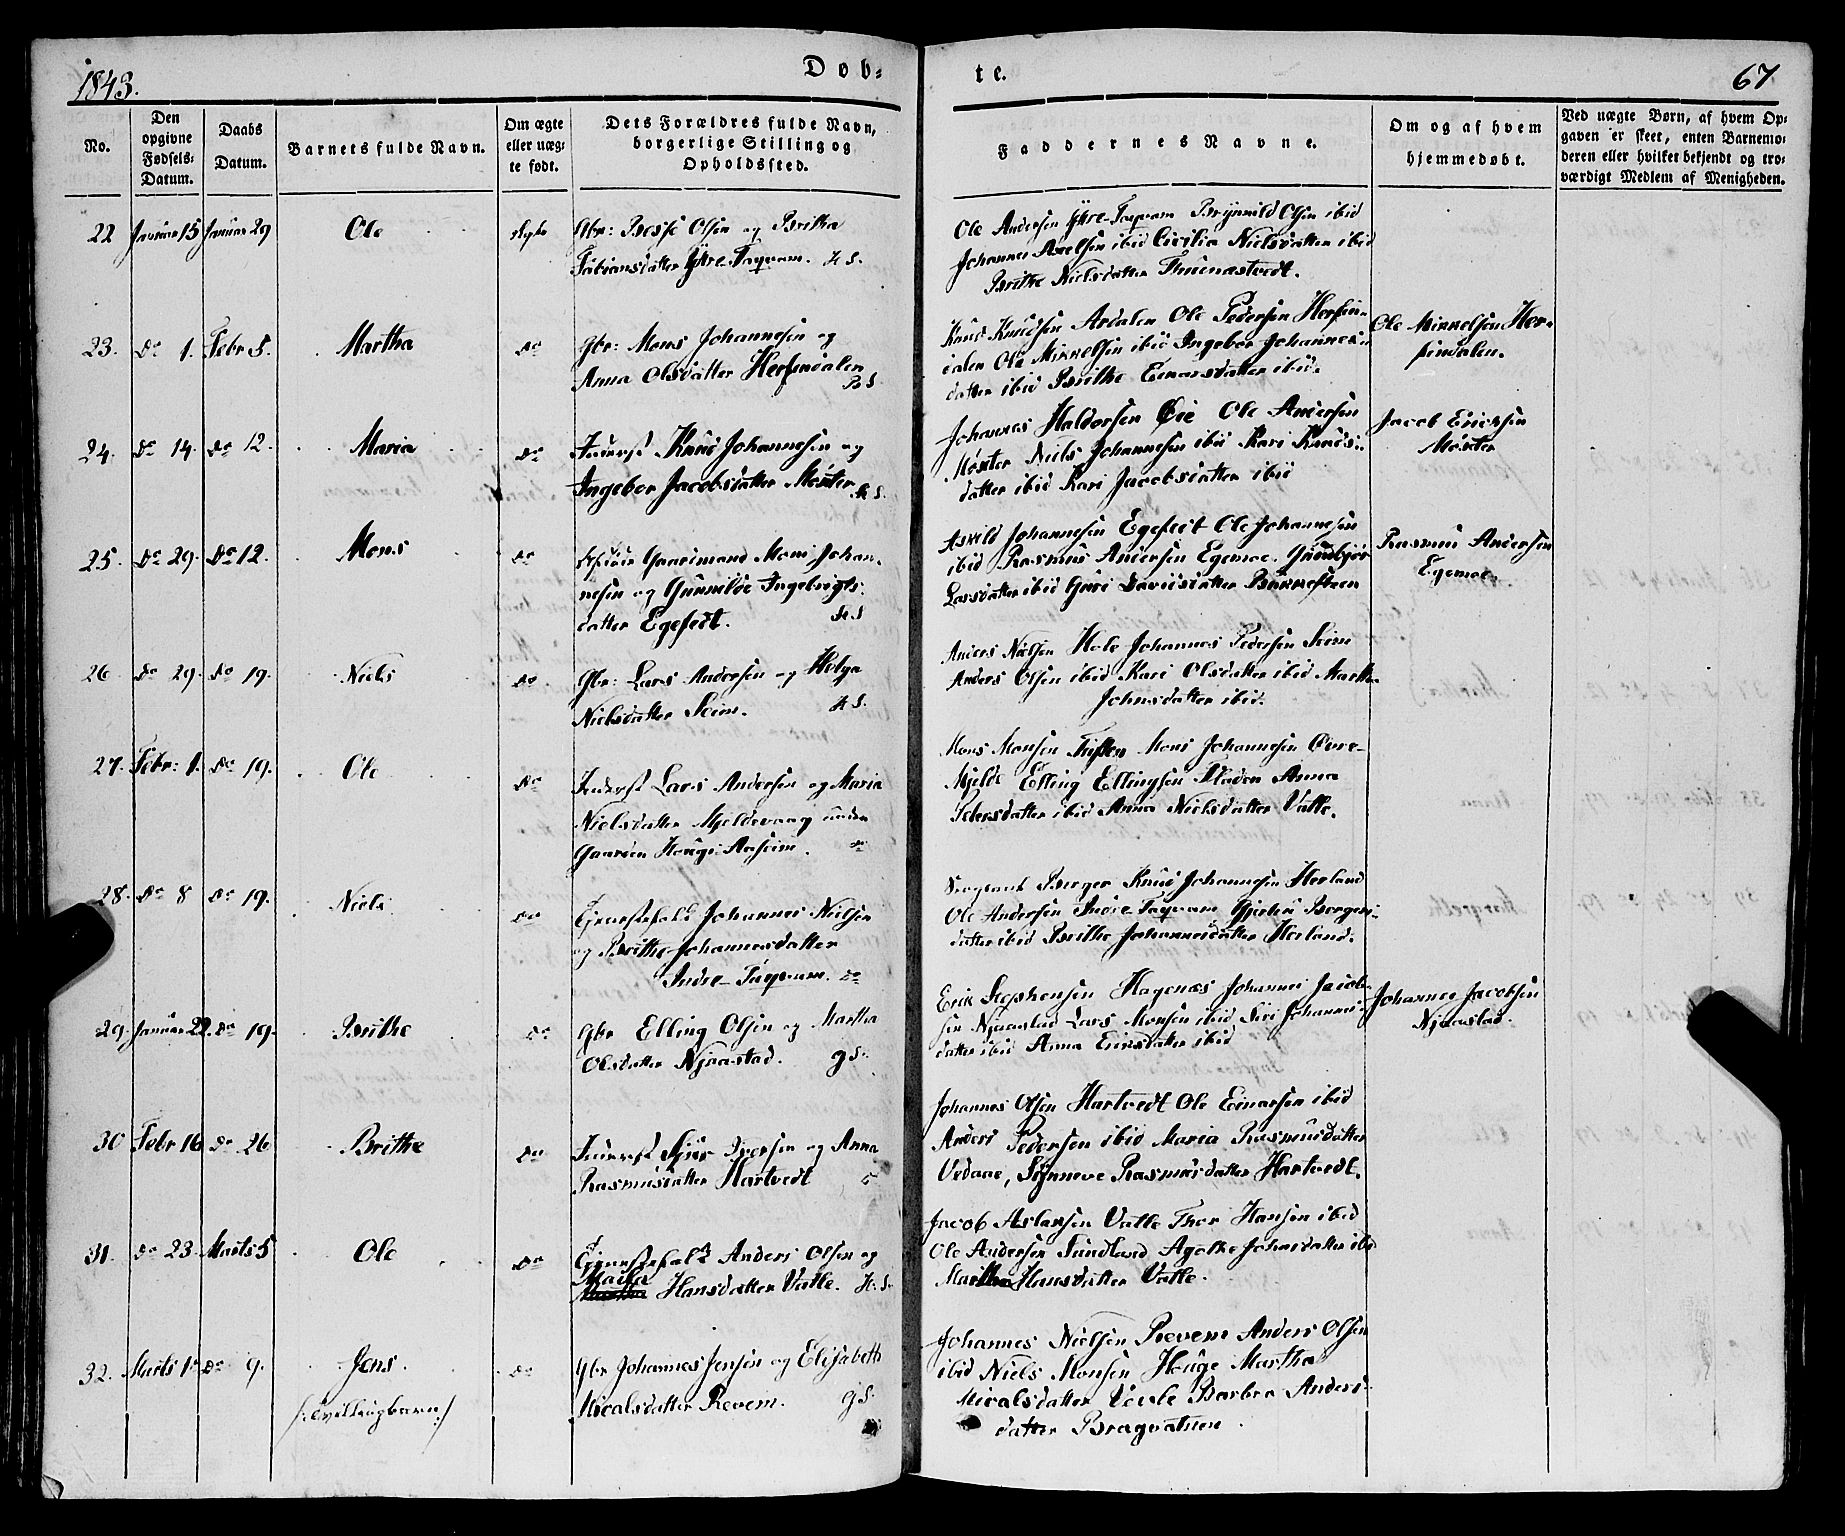 1843.
Døb-
te.
67
No.
Den
opgivne
Fødsels-
Datum.
Daabs
Datum.
Barnets fulde Navn.
Om ægte
eller uæg-
te født.
Dets Forældres fulde Navn,
borgerlige Stilling og
Opholdssted.
Faddernes Navne.
Om og af hvem
hjemmedøbt.
Ved uægte Børn, af hvem Op-
gaven er skeet, enten Barnemo-
deren eller hvilket bekjendt og tro-
værdigt Medlem af Menigheden.
22 Januar 15 Januar 29 Ole ægte
Gbr: Olsen og Britha
Fabiansdatter Yttre-Taqvam.
Ole Andersen Yttre-Taqvam Brynnild Olsen ibid
Johannes Axelsen ibid Cicilia Nielsdatter ibid
Brithe Nielsdatter Thunestvedt.
23. do 1. Febr 5. Martha do
Gbr: Mons Johannesen og
Anna Olsdatter Herfindalen
Knud Knudsen Ardalen Ole Pedersen Herfin-
dalen Ole Mikkelsen ibid Ingebor Johannes-
datter ibid Brithe Einarsdatter ibid.
Ole Mikkelsen Her-
findalen.
24. do 14. do 12. Maria do
Inderst Knud Johannesen og
Ingebor Jacobsdatter Møster
Johannes Haldorsen Øie Ole Andersen
Møster Niels Johannesen ibid Kari Knuds-
datter ibid Kari Jacobsdatter ibid
Jacob Ericksen
Møster
25. do 29. do 12. Mons do
Gaardmand Mons Johan-
nesen og Gunnilde Ingebrigts-
datter Egefedt.
Johannesen Egefedt Ole Johannesen
ibid Rasmus Andersen Egemoe.
Larsdatter ibid Guri Davidsdatter
Rasmus Andersen
Egemoe.
26 do 29. do 19. Niels do
Gbr: Lars Andersen og Helga
Nielsdatter Seim.
Anders Nielsen Hole Johannes Pedersen Seim
Anders Olsen ibid Kari Olsdatter ibid Martha
Johnsdatter ibid.
27. Febr: 1. do 19. Ole do
Inderst Lars Andersen og Maria
Nielsdatter Mjeldevaag under
Gaarden Houge Aaseim. do
Mons Monsen Mons Johannesen Øvre-
Mjelde Elling Ellingsen Anna
Pedersdatter ibid Anna Nielsdatter Valle.
28. do 8 do 19. Niels do
Gevorbefald Johannes Nielsen
og Brithe Johannesdatter
Indre-Taqvam. do
Sergeant Berger Knud Johannesen Herland
Ole Andersen Indre-Taqvam Berges-
datter ibid Brithe Johannesdatter Herland.
29. Januar 22. do 19. Brithe do
Gbr Elling Olsen og Martha
Olsdatter Njaastad. G.S.
Erik Stephensen Hagenæs Johannes Jacob-
sen Njaastad Lars Monsen ibid Siri Johannes-
datter ibid Anna Ericksdatter ibid
Johannes Jacobsen
Njaastad.
30 Febr 16 do 26 Brithe do
Inderst Sjur Iversen og Anna
Rasmusdatter Hartvedt
Johannes Olsen Hartvedt Ole Einarsen ibid
Anders Pedersen ibid Maria Rasmusdatter
Vedaae, Synneve Rasmusdatter Hartvedt.
31. do 23. Marts 5 Ole do
Anders Olsen og
Hansdatter Valle. H.S.
Jacob Aslaksen Valle Thor Hansen ibid
Ole Andersen Sundland Agathe Johnsdatter ibid
Hansdatter Valle.
32. Marts 1. do 9. Jens. do
/: tvillingbarn :/
Gbr Johannes Jensen og Elisabeth
Nicalsdatter Revem. G.S.
Johannes Nielsen Revem Anders Olsen
ibid Niels Monsen Houge Martha
Nicalsdatter Veele Barbra Anders-
datter Bragvatnen.